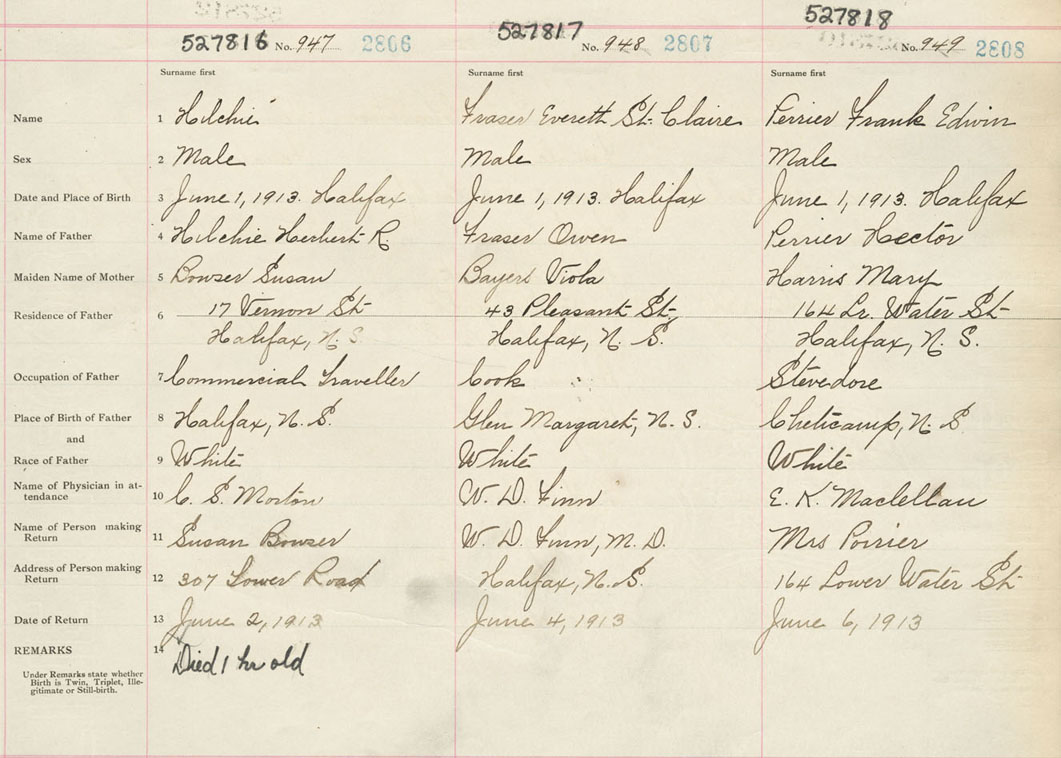 527816 No. 947 2806
527817 No. 948 2807
527818 No. 949 2808
Surname first Surname first Surname first
Name 1 Hilchie Fraser Everett St. Claire Perrier Frank Edwin
Sex 2 Male Male Male
Date and Place of Birth 3 June 1, 1913. Halifax June 1, 1913. Halifax June 1, 1913. Halifax
Name of Father 4 Hilchie Herbert R. Fraser Owen Perrier Hector
Maiden Name of Mother 5 Bowser Susan Bayers Viola Harris Mary
Residence of Father 6 17 Vernon St- 43 Pleasant St., 164 Lr. Water St-
Halifax, N. S. Halifax, N. S. Halifax, N. S.
Occupation of Father 7 Commercial Traveller Cook Stevedore
Place of Birth of Father 8 Halifax, N. S. Glen Margaret, N. S. Cheticamp, N. S
and
Race of Father 9 White White White
Name of Physician in at-
tendance 10 C. S. Morton W. D. Finn E. K. Maclellan
Name of Person making
Return 11 Susan Bowser W. D. Finn, M. D. Mrs Poirier
Address of Person making
Return 12 307 Lower Road Halifax, N. S. 164 Lower Water St-
Date of Return 13 June 2, 1913 June 4, 1913 June 6, 1913
REMARKS 14 Died 1 hr old
Under Remarks state whether
Birth is Twin, Triplet, Ille-
gitimate or Still-birth.